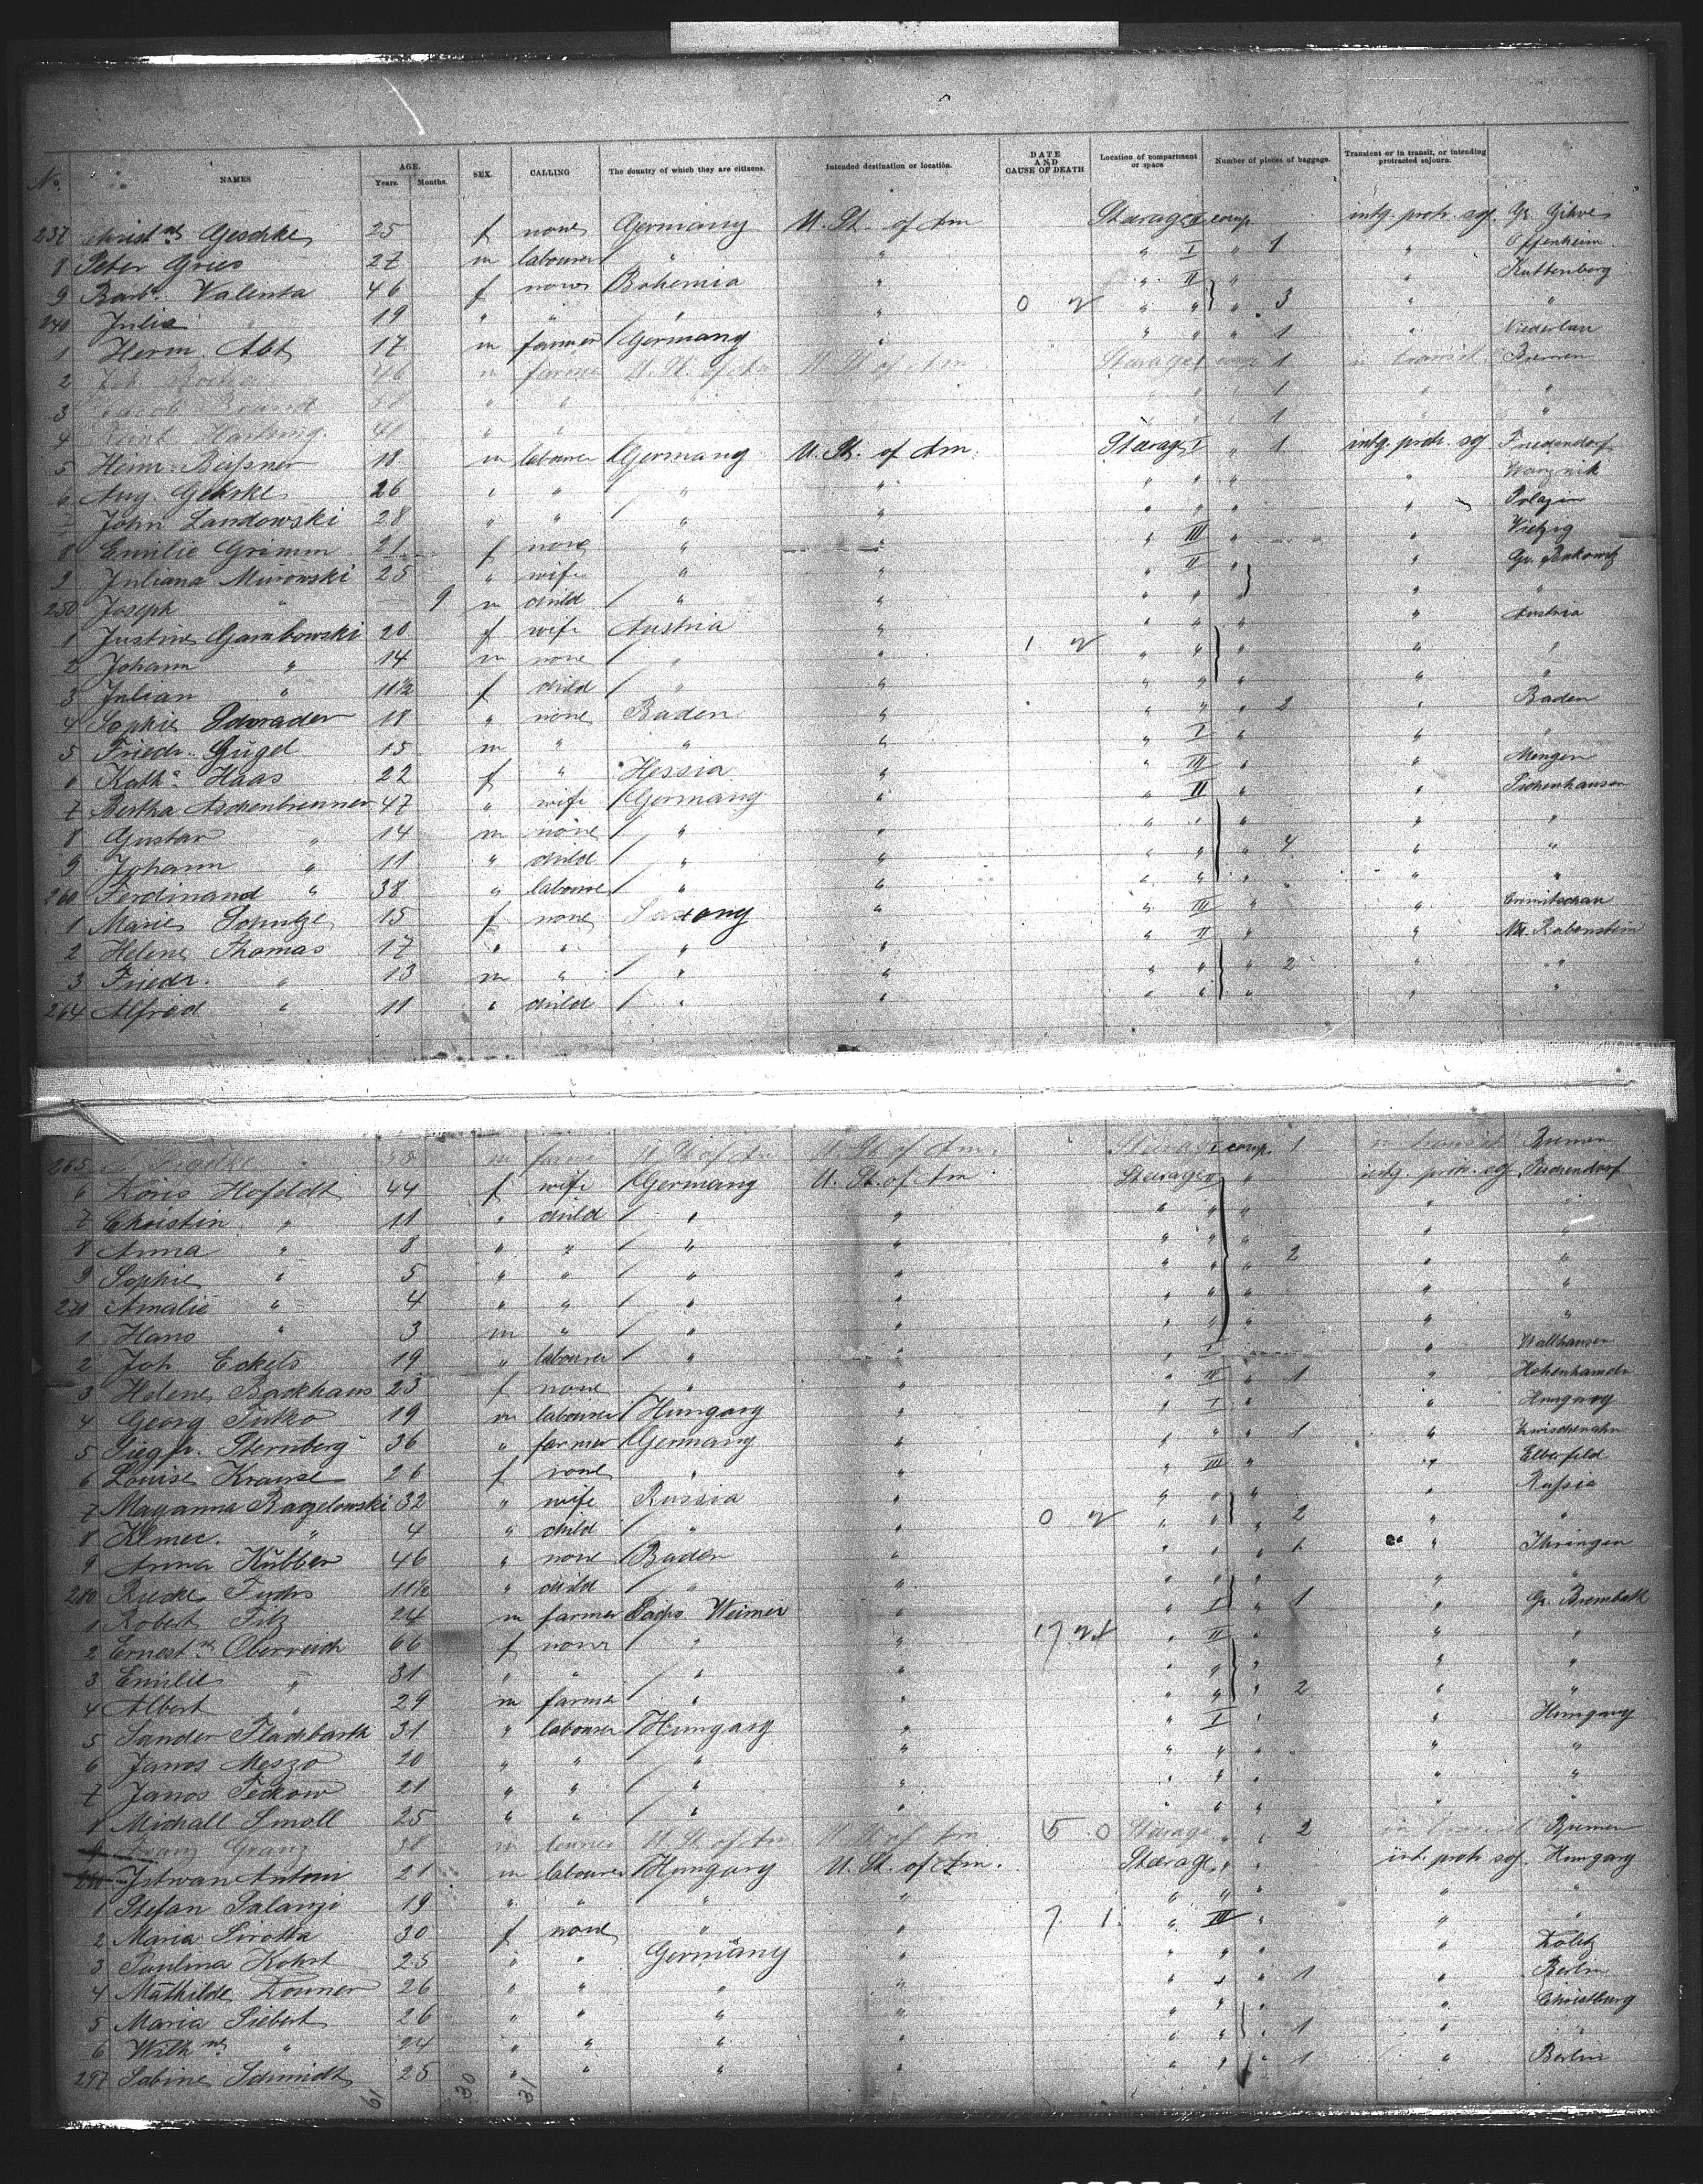 No. NAMES AGE. Years. Months. SEX. CALLING The country of which they are citizens. Intended destination or location. DATE AND CAUSE OF DEATH Location of compartment or space Number of pieces of baggage. Transient or in transit, or intending protracted sojourn.
237 Geschke 25 f none Germany U. St. of Am Steerage comp. intg. protr. soj. Gr.
8 Peter Gries 27 m labourer " " " I " 1 " Offenheim
9 Barb. Valenta 46 f none Bohemia " " II " " Kuttenberg
240 Julia " 19 " " " " " " " 3 " "
1 Herm. Abt 17 m farmer Germany " " " " 1 "
2 46 m farmer U. St. of Am U. St. of Am Steerage comp 1 in transit Bremen
3 Jacob Brand 58 " " " 1 " "
4 Hartung 41 " " " 1 " "
5 Heinr. Beissner 18 m labourer Germany U. St. of Am. Steerage I " 1 intg. protr. soj Friedendorf
6 Aug. Gehrke 26 " " " " " " " "
7 John Landowski 28 " " " " " " " "
8 Emilie Grimm 21 f none " " " III " " Vietzig
9 Juliana Murowski 25 " wife " " " II " " Gr.
250 Joseph " 9 m child " " " " " " "
1 Justine Gambowski 20 f wife Austria " " " " " Austria
2 Johann " 14 m none " " 1 " " " " "
3 Julian " 11½ f child " " " " " " "
4 Sophie Schrader 18 " none Baden " " " " 2 " Baden
5 Friedr. Gugel 15 m " " " " I " " "
6 Kath.a Haas 22 f " Hessia " " III " " Mengen
7 Bertha Aschenbrenner 47 " wife Germany " " II " " Sichenhausen
8 Gustav " 14 m none " " " " " " "
9 Johann " 11 " child " " " " " 4 " "
260 Ferdinand " 38 " laboure " " " " " " "
1 Marie Schulze 15 f none Saxony " " III " " Crimitschau
2 Helene Thomas 17 " " " " " II " " Rabenstein
3 Friedr. " 13 m " " " " " " 2 " "
264 Alfred " 11 " child " " " " " " "
265 58 m farme U. St. of Am U. St. of Am. Steerage comp. 1 in transit Bremen
6 Hofeldt 44 f wife Germany U. St. of Am Steerage II " intg. protr. soj
7 Christin " 11 " child " " " " " " "
8 Anna " 8 " " " " " " " " "
9 Sophie " 5 " " " " " " " 2 " "
270 Amalie " 4 " " " " " " " " "
1 Hans " 3 m " " " " " " " "
2 Joh Eckels 19 " labourer " " " I " " Wallhausen
3 Helene Backhaus 23 f none " " " III " 1 " Hohenhameln
4 Georg Titko 19 m labourer Hungary " " I " " Hungary
5 Siegfr. Sternberg 36 " farmer Germany " " " " 1 " Zwischenahn
6 Louise Krause 26 f none " " " III " " Elberfeld
7 Maganna Bazelowski 32 " wife Russia " " " " " Russia
8 Klmec. " 4 " child " " 0 " " " 2 " "
9 Anna Kübber 46 " none Baden " " " " 1 " Ihringen
280 Rieke Fuchs 11½ " child " " " " " " "
1 Robert Fitz 24 m farmer Sachs. Weimer " " I " 1 "
2 Ernest.ne Oberreich 66 f none " " 17 " II " "
3 Emilie " 31 " " " " " " " " "
4 Albert " 29 m farme " " " " " 2 " "
5 Sander Flachbarth 31 " labourer Hungary " " I " " Hungary
6 Janos Meszo 20 " " " " " " " " "
7 Janos Teckow 21 " " " " " " " " "
8 Michall Smoll 25 " " " " " " " " "
9 Franz Granz 38 m U. St. of Am U. St. of Am 5 0 Steerage " " 2 in transit Bremen
290 Istwan Antoni 21 m labourer Hungary U. St. of Am. Steerage " " int. protr. soj. Hungary
1 Stefan Salanzi 19 " " " " " " " " "
2 Maria Sirotta 30 f none " " 7 1 " III " " "
3 Paulina Kohrt 25 " " Germany " " " " "
4 Mathilde Donner 26 " " " " " " " 1 " Berlin
5 Maria Siebert 26 " " " " " " " " Christburg
6 Wilh.ne " 24 " " " " " " " 1 " "
297 Sabine Schmidt 25 " " " " " " " 1 " Berlin
61 30 31